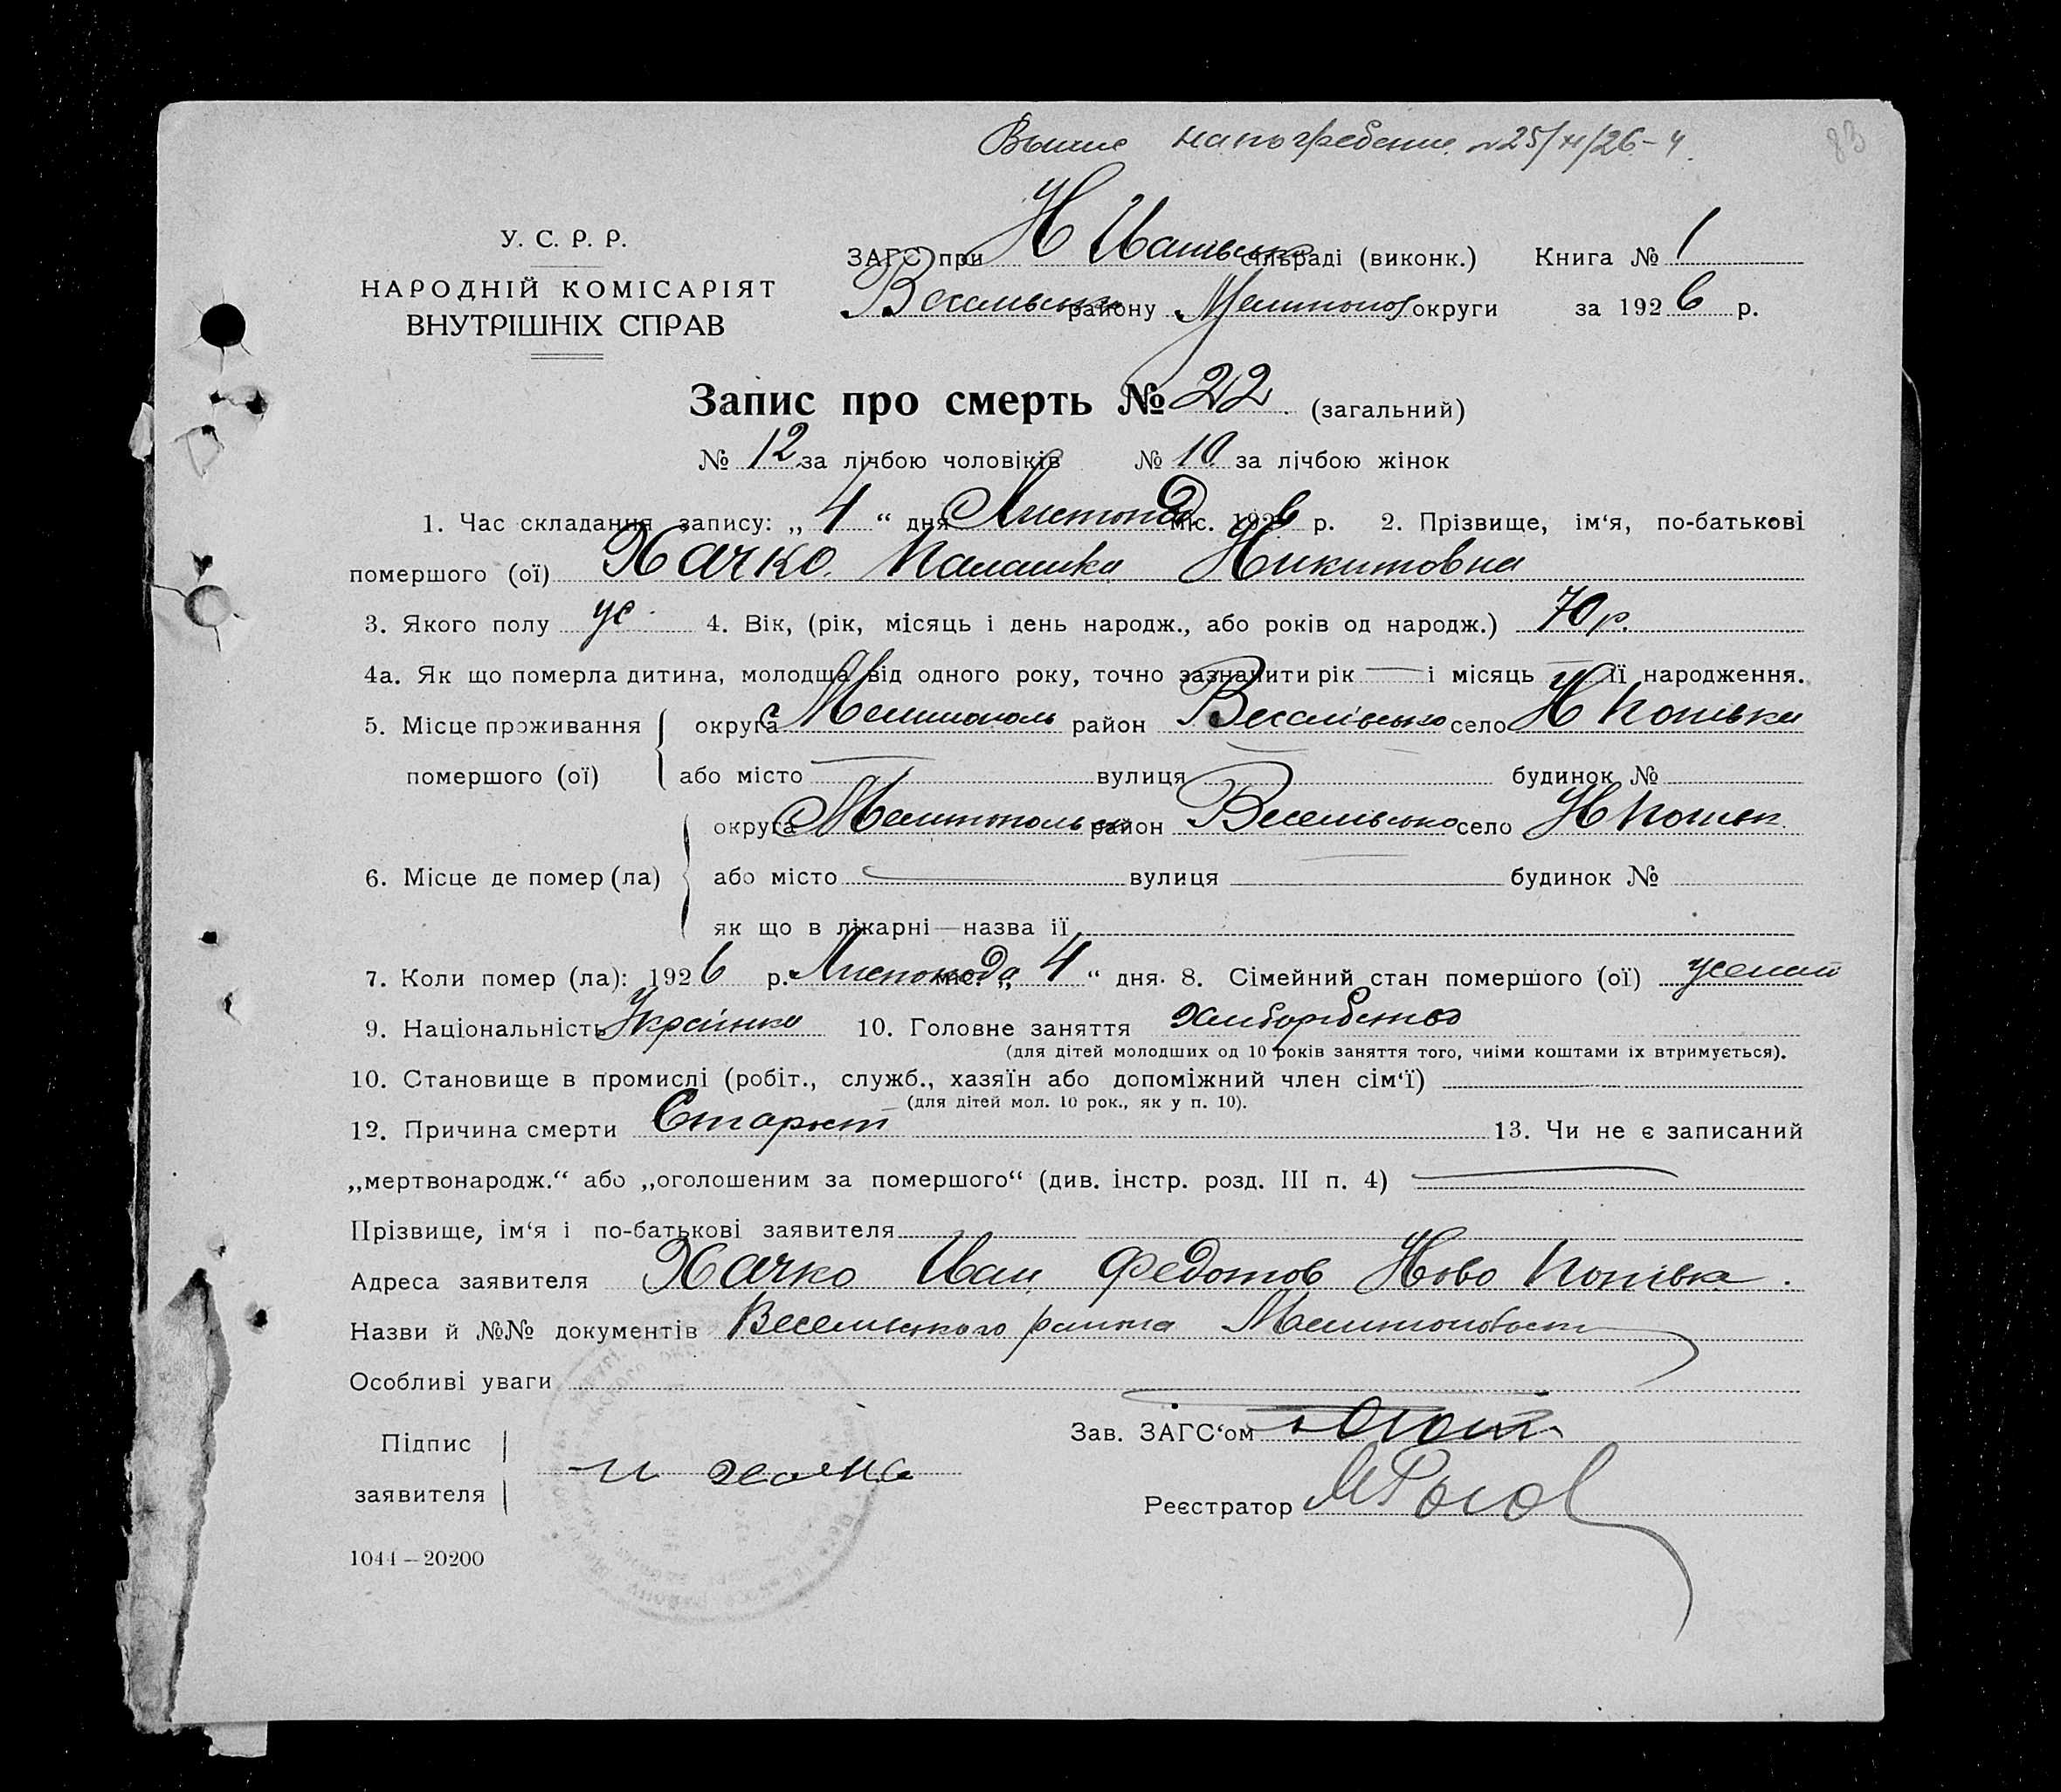 на погребение 25/XI/26-
83
У. С. Р. Р.
НАРОДНІЙ КОМІСАРІЯТ
ВНУТРІШНІХ СПРАВ
ЗАГС при Н сільраді (виконк.) Книга № 1
району округи за 1926 р.
Запис про смерть № 22 (загальний)
№ 12 за лічбою чоловіків № 10 за лічбою жінок
1. Час складання запису: „ 4 “ дня Листопад міс. 1926 р. 2. Прізвище, ім‘я, по-батькові
помершого (ої) Хачко Палашка Никитовна
3. Якого полу 4. Вік, (рік, місяць і день народж., або років од народж.) 70 р.
4а. Як що померла дитина, молодша від одного року, точно зазначити рік — і місяць — її народження.
5. Місце проживання округа Мелитополь район Веселівсько село Н Попівка
помершого (ої) або місто вулиця будинок №
округа Мелитопольск район Веселівсько село Н
6. Місце де помер (ла) або місто — вулиця — будинок №
як що в лікарні—назва її
7. Коли помер (ла): 1926 р. Листопада міс. „ 4 “ дня. 8. Сімейний стан помершого (ої)
9. Національність Українка 10. Головне заняття Хлиборобство
(для дітей молодших од 10 років заняття того, чиїми коштами їх втримується).
10. Становище в промислі (робіт., служб., хазяїн або допоміжний член сім‘ї)
(для дітей мол. 10 рок., як у п. 10).
12. Причина смерти Старост 13. Чи не є записаний
„мертвонародж.“ або „оголошеним за помершого“ (див. інстр. розд. III п. 4) —
Прізвище, ім‘я і по-батькові заявителя
Адреса заявителя Хачко Иван Федотов Ново Попівка.
Назви й №№ документів района
Особливі уваги
Підпис
заявителя
Зав. ЗАГС‘ом
Реєстратор
1044—20200